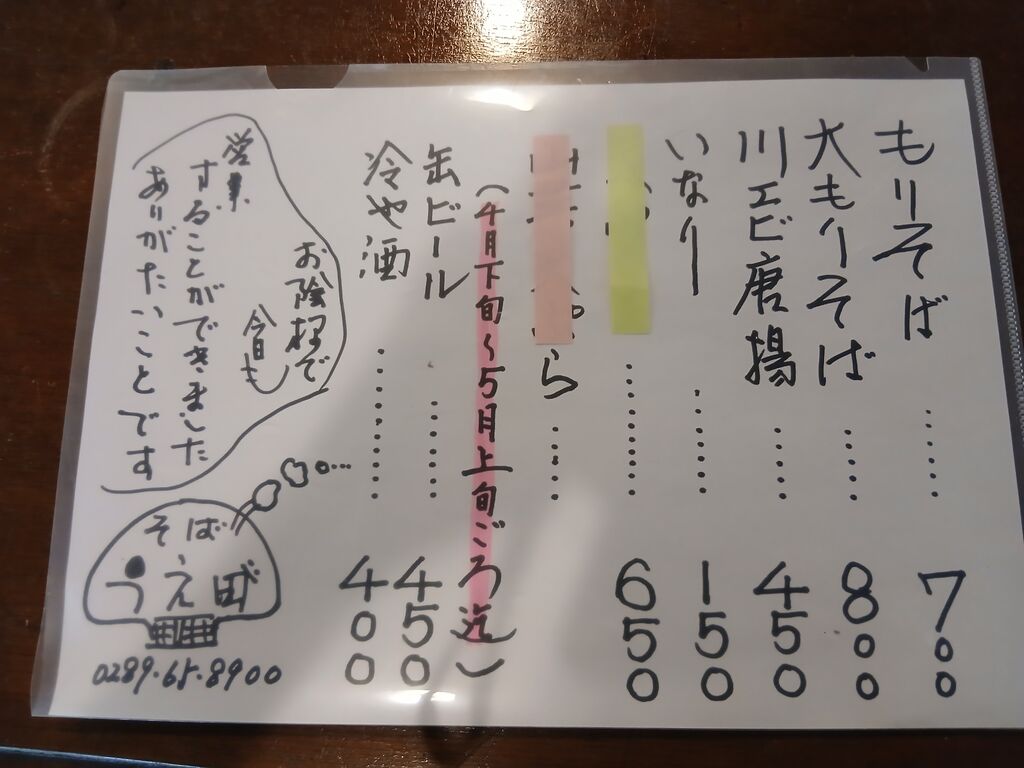 もりそば ・・・・・ 700
大もりそば ・・・・・ 800
川エビ唐揚 ・・・・・ 450
いなり ・・・・・・・ 150
・・・・・・・・・ 650
ら ・・・・・
(4月下旬〜5月上旬ごろ迄)
缶ビール ・・・・・・・ 450
冷や酒 ・・・・・・・・・・ 400
お陰様で
今日も
営業
することができました
ありがたいことです
そば
うえ田
0289・65・8900